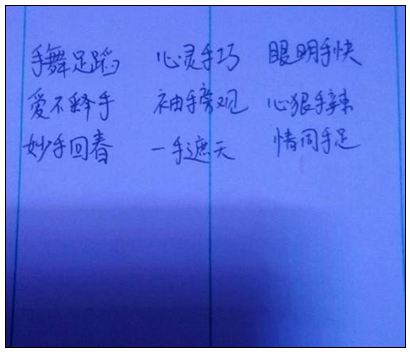 手舞足蹈 心灵手巧 眼明手快
爱不释手 袖手旁观 心狠手辣
妙手回春 一手遮天 情同手足